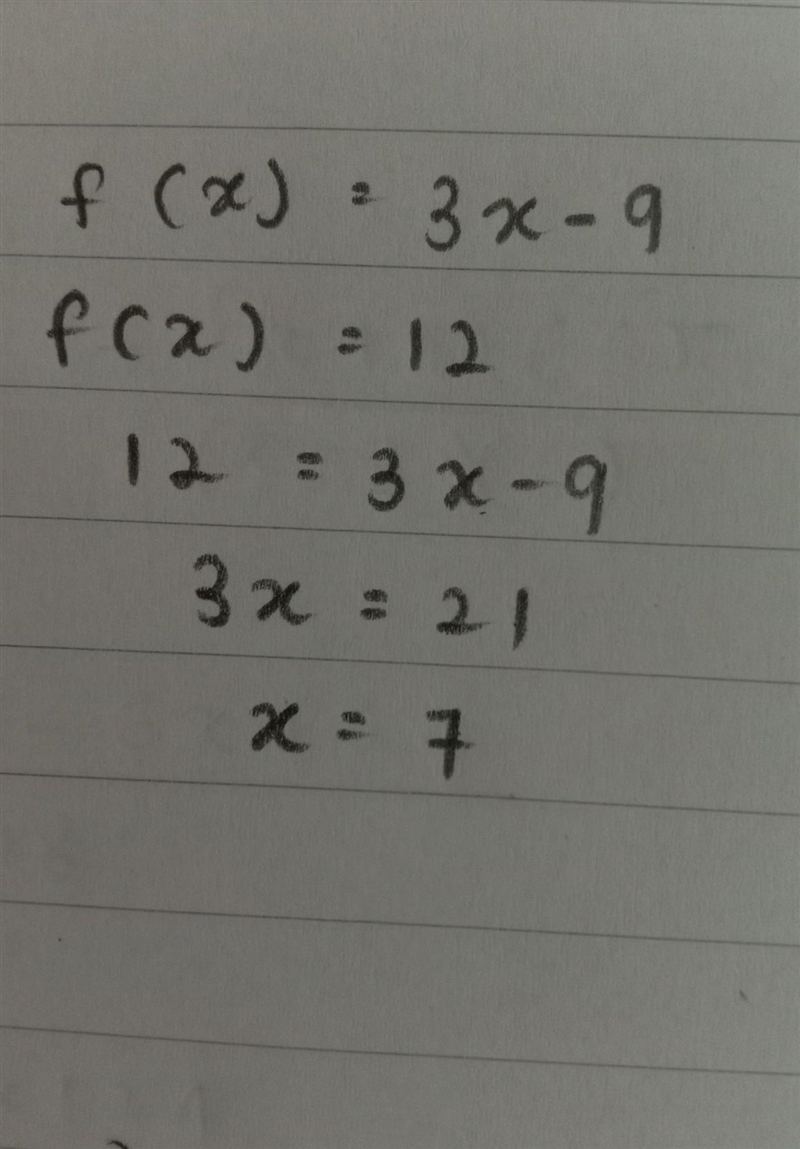 f(x) = 3x - 9
f(x) = 12
12 = 3x - 9
3x = 21
x = 7